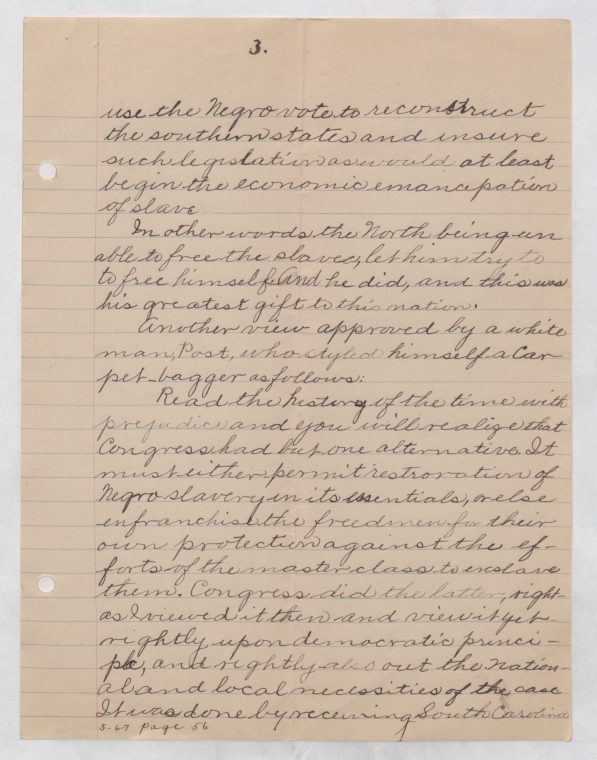 3.
use the Negro vote to reconstruct
the southern states and insure
such legislation as would at least
begin the economic emancipation
of slave
In other words the North being un
able to free the slaves, let him try to
to free himself. And he did, and this was
his greatest gift to this nation.
Another view approved by a white
man, Post, who styled himself a Car-
pet-bagger as follows:
Read the history of the time with
prejudice and you will realize that
Congress had but one alternative. It
must either permit restroration of
Negro slavery in its essentials, or else
enfranchise the freedmen for their
own protection against the ef-
forts of the master class to enslave
them. Congress did the latter, right-
as I viewed it then and view it yet-
rightly upon democratic princi-
ple, and rightly also out the nation-
al and local necessities of the case
It was done by receiving South Carolina
5-67 Page 56